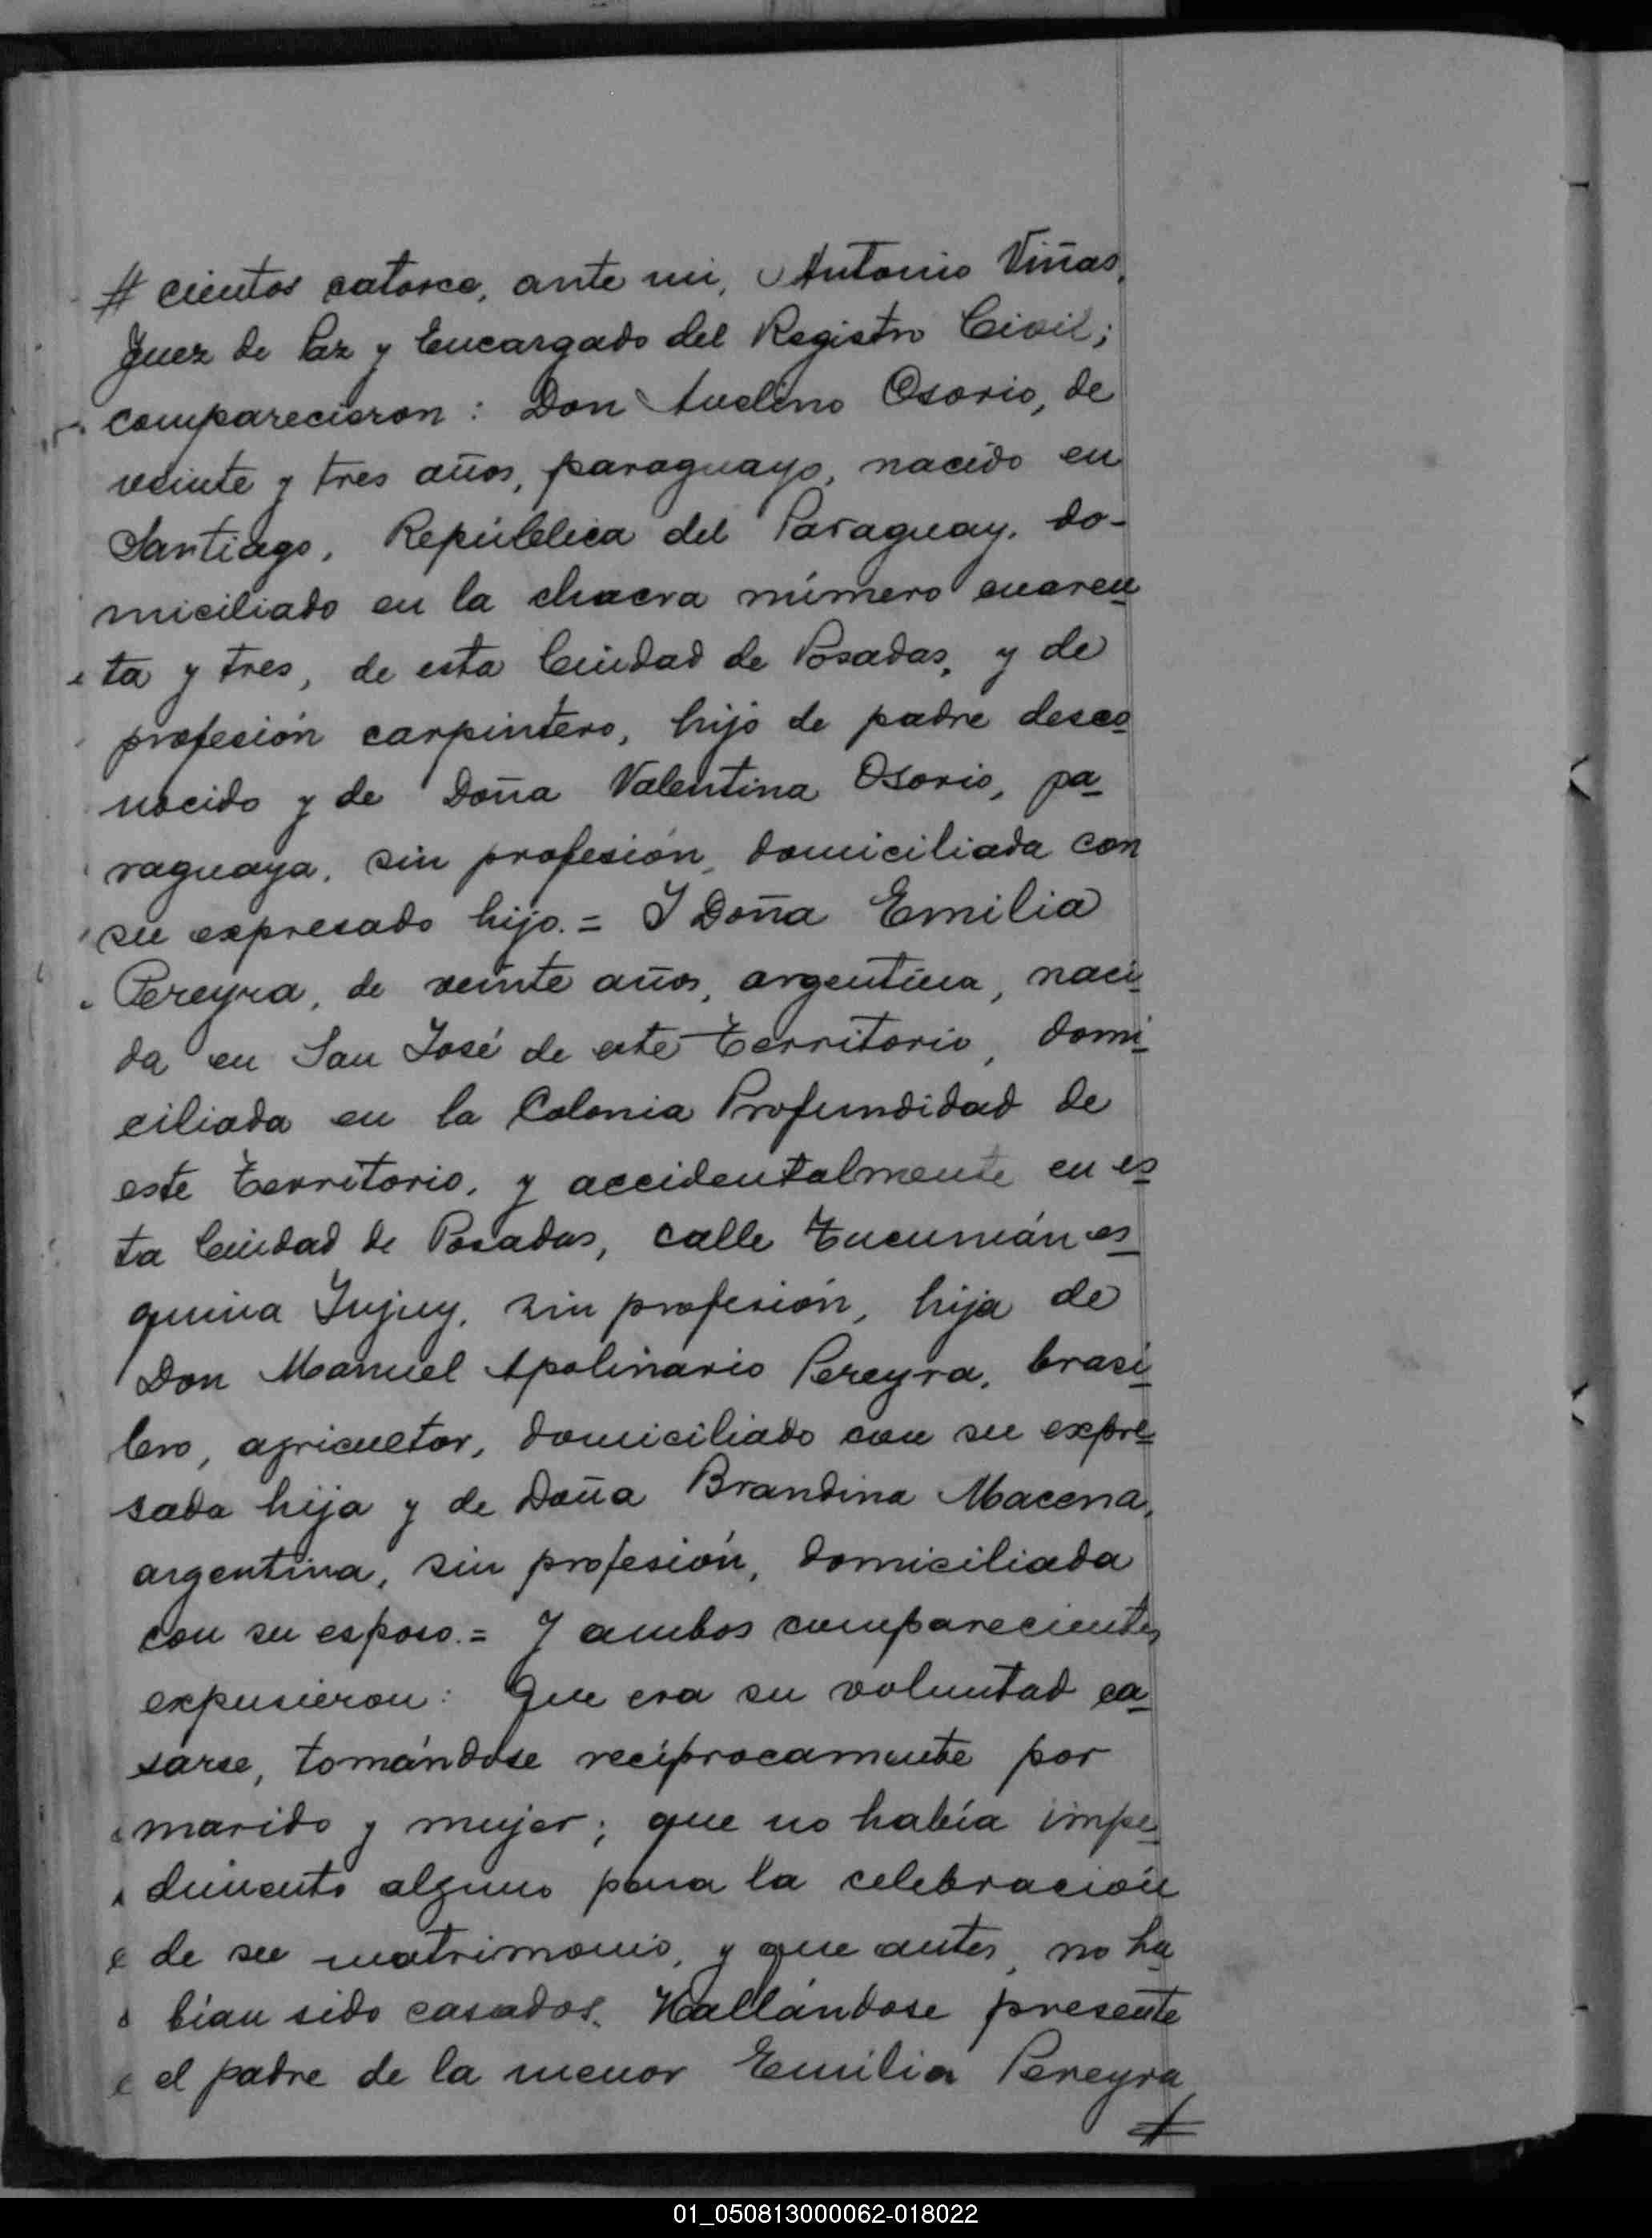 # cientos catorce, ante mi, Antonio Viñas,
Juez de Paz y Encargado del Registro Civil;
comparecieron: Don Avelino Osorio, de
veinte y tres años, paraguayo, nacido en
Santiago, República del Paraguay, do-
miciliado en la chacra número cuaren
ta y tres, de esta Ciudad de Posadas, y de
profesión carpintero, hijo de padre desco
nocido y de Doña Valentina Osorio, pa
raguaya, sin profesión, domiciliada con
su expresado hijo.= Y Doña Emilia
Pereyra, de veinte años, argentina, naci
da en San José de este Territorio, domi
ciliada en la Colonia Profundidad de
este Territorio, y accidentalmente en es
ta Ciudad de Posadas, calle Tucumán es
quina Jujuy, sin profesión, hija de
Don Manuel Apolinario Pereyra, brasi
lero, agricultor, domiciliado con su expre
sada hija y de Doña Brandina Macena,
argentina, sin profesión, domiciliada
con su esposo.= Y ambos comparecientes
expusieron: Que era su voluntad ca
sarse, tomándose recíprocamente por
marido y mujer; que no había impe
dimento alguno para la celebración
de su matrimonio, y que antes, no ha
bían sido casados. Hallándose presente
el padre de la menor Emilia Pereyra,
#
01_050813000062-018022